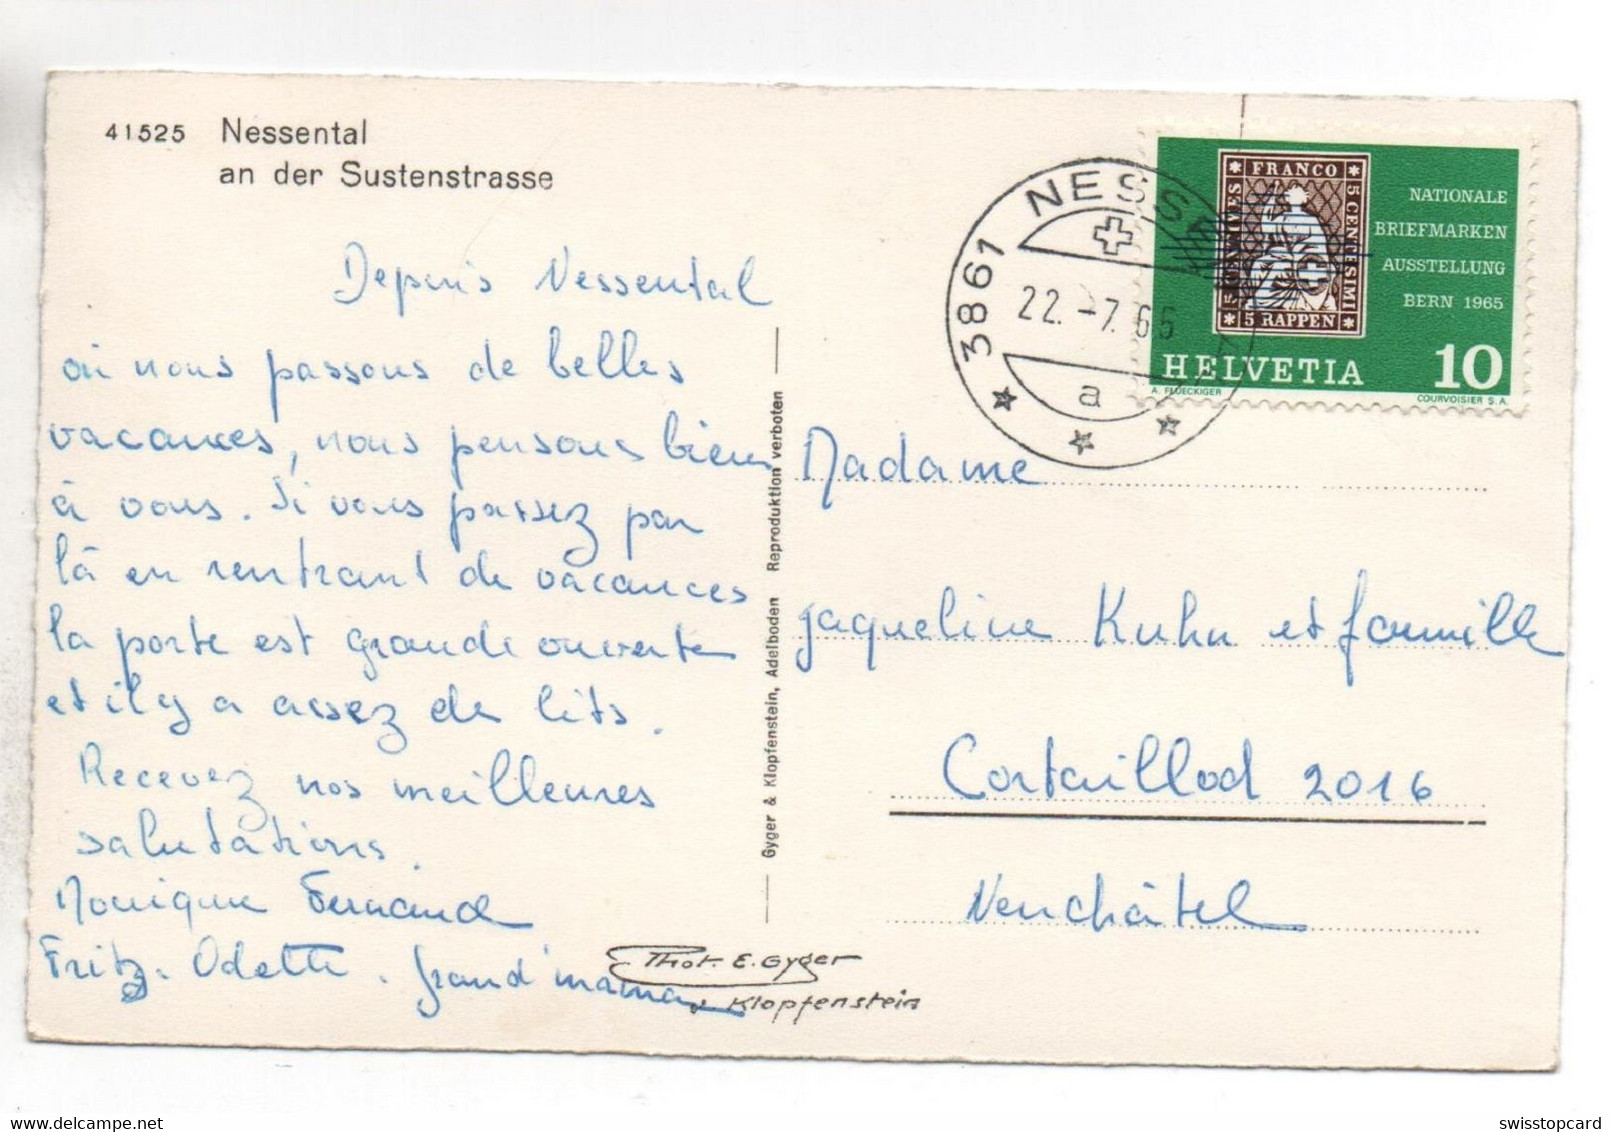 41525 Nessental
an der Sustenstrasse
Depuis Nessental
où nous passons de belles
vacances, nous pensons bien
à vous. Si vous passez par
là en rentrant de vacances
la porte est grande ouverte
et il y a assez de lits.
Recevez nos meilleures
salutations.
Monique Fernand
Fritz. Odette. grand'maman
Gyger & Klopfenstein, Adelboden Reproduktion verboten
Phot. E. Gyger
Klopfenstein
3861 NESSE
22.-7.65
a
FRANCO
5 CENTESIMI
5 RAPPEN
NATIONALE
BRIEFMARKEN
AUSSTELLUNG
BERN 1965
HELVETIA 10
A. FLUECKIGER
COURVOISIER S.A.
Madame
Jaqueline Kuhn et famille
Cortaillod 2016
Neuchâtel
swisstopcard